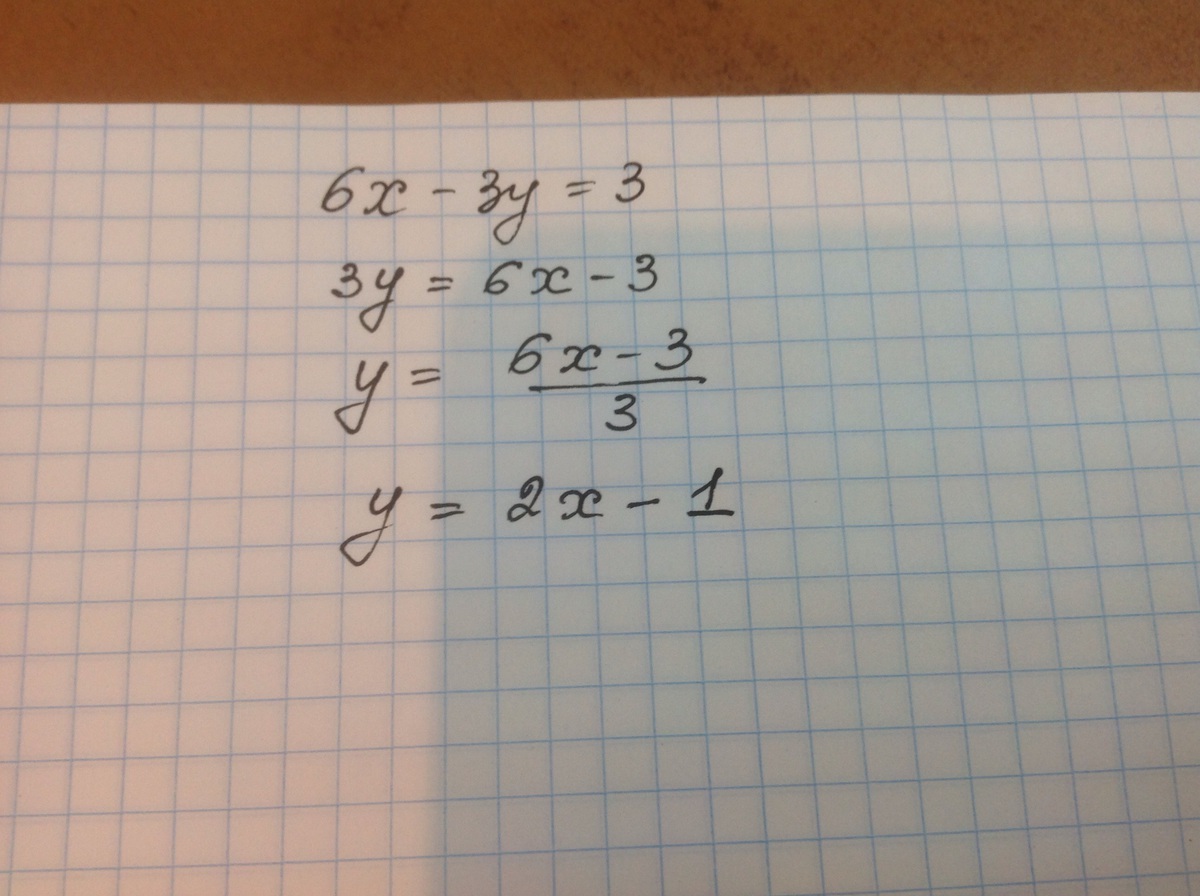 6x - 3y = 3
3y = 6x - 3
y = (6x - 3)/3
y = 2x - 1